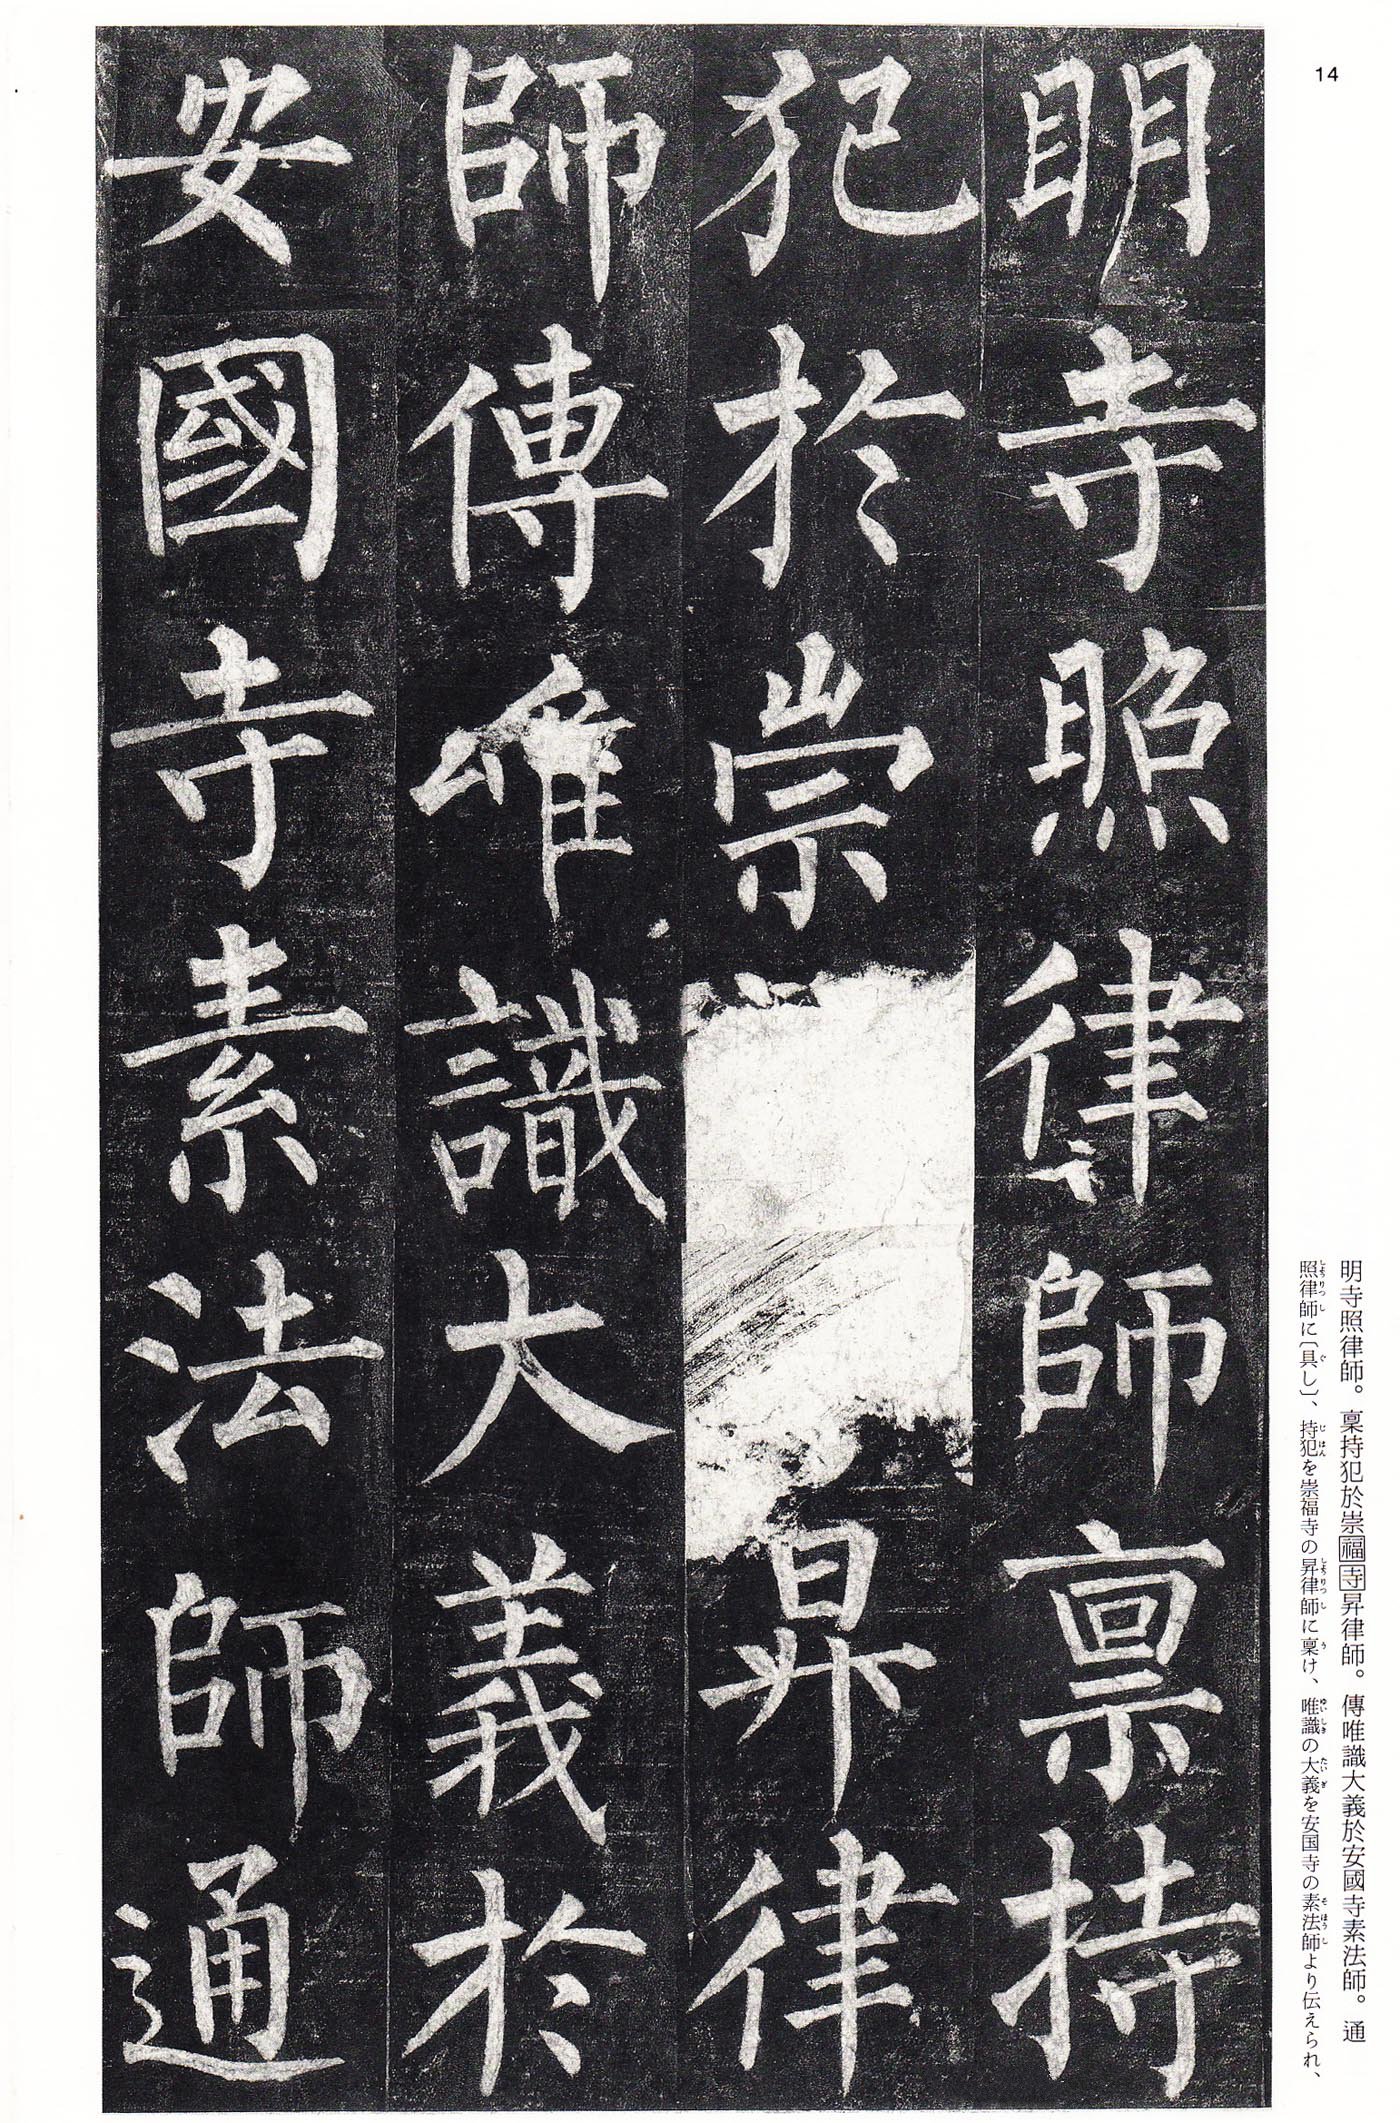 14
明寺照律師稟持
犯於崇昇律
師傳唯識大義於
安國寺素法師通
明寺照律師。稟持犯於崇福寺昇律師。傳唯識大義於安國寺素法師。通
照律師に〔具し〕、持犯を崇福寺の昇律師に稟け、唯識の大義を安国寺の素法師より伝えられ、